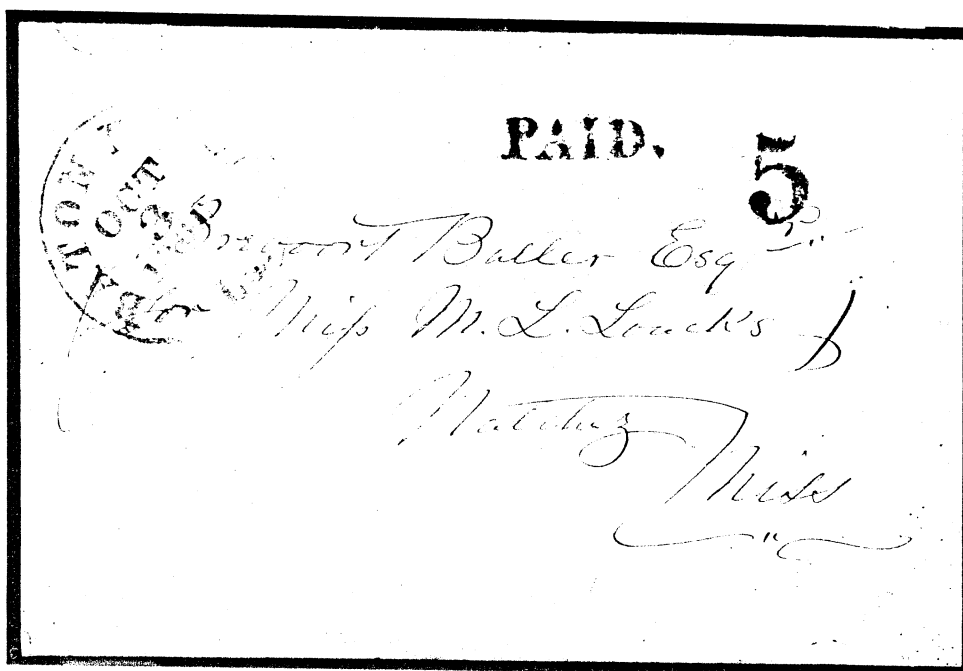 PAID. 5
BATON
OCT
Butler Esq
Miss M. L. Loucks
Natchez
Miss